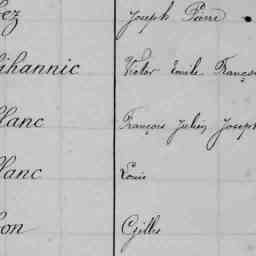 ez Joseph Pierre
ihannic Victor Emile François
lanc François Julien Joseph
lanc Louis
on Gilles